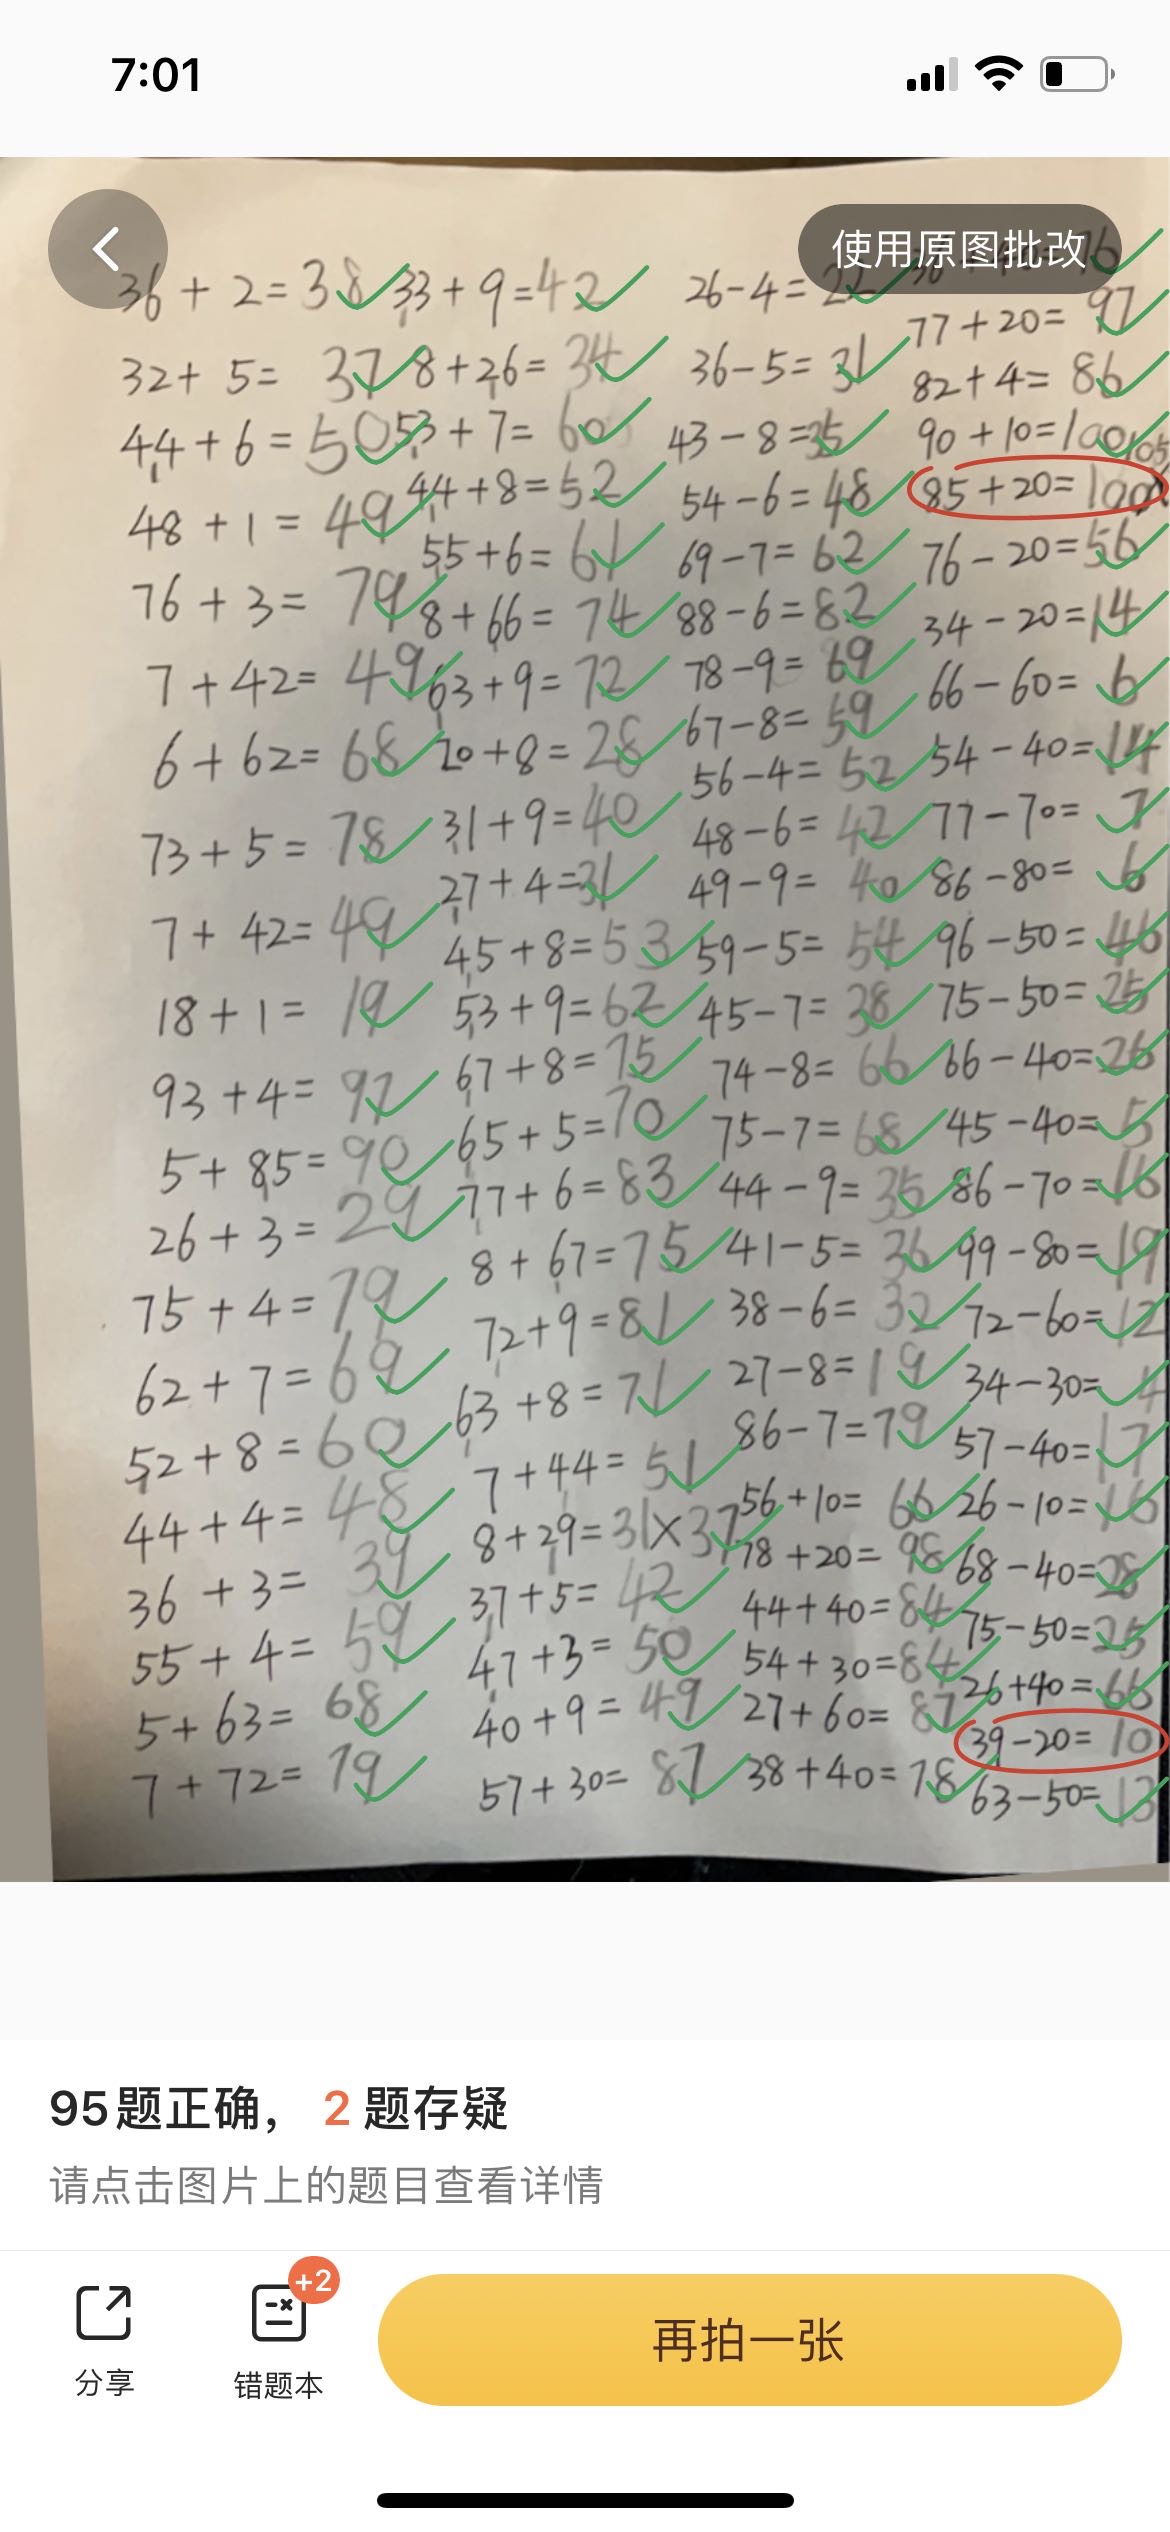 7:01
使用原图批改
36 + 2 = 38
32 + 5 = 37
44 + 6 = 50
48 + 1 = 49
76 + 3 = 79
7 + 42 = 49
6 + 62 = 68
73 + 5 = 78
7 + 42 = 49
18 + 1 = 19
93 + 4 = 97
5 + 85 = 90
26 + 3 = 29
75 + 4 = 79
62 + 7 = 69
52 + 8 = 60
44 + 4 = 48
36 + 3 = 39
55 + 4 = 59
5 + 63 = 68
7 + 72 = 79
33 + 9 = 42
8 + 26 = 34
53 + 7 = 60
44 + 8 = 52
55 + 6 = 61
8 + 66 = 74
63 + 9 = 72
20 + 8 = 28
31 + 9 = 40
27 + 4 = 31
45 + 8 = 53
53 + 9 = 62
67 + 8 = 75
65 + 5 = 70
77 + 6 = 83
8 + 67 = 75
72 + 9 = 81
63 + 8 = 71
7 + 44 = 51
8 + 29 = 31 × 37
37 + 5 = 42
47 + 3 = 50
40 + 9 = 49
57 + 30 = 87
26 - 4 = 22
36 - 5 = 31
43 - 8 = 35
54 - 6 = 48
69 - 7 = 62
88 - 6 = 82
78 - 9 = 69
67 - 8 = 59
56 - 4 = 52
48 - 6 = 42
49 - 9 = 40
59 - 5 = 54
45 - 7 = 38
74 - 8 = 66
75 - 7 = 68
44 - 9 = 35
41 - 5 = 36
38 - 6 = 32
27 - 8 = 19
86 - 7 = 79
56 + 10 = 66
78 + 20 = 98
44 + 40 = 84
54 + 30 = 84
27 + 60 = 87
38 + 40 = 78
77 + 20 = 97
82 + 4 = 86
90 + 10 = 100
105
85 + 20 =
76 - 20 = 56
34 - 20 = 14
66 - 60 = 6
54 - 40 = 14
77 - 70 = 7
86 - 80 = 6
96 - 50 = 46
75 - 50 = 25
66 - 40 = 26
45 - 40 = 5
86 - 70 = 16
99 - 80 = 19
72 - 60 = 12
34 - 30 = 4
57 - 40 = 17
26 - 10 = 16
68 - 40 = 28
75 - 50 = 25
26 + 40 = 66
39 - 20 = 10
63 - 50 = 13
95题正确， 2 题存疑
请点击图片上的题目查看详情
+2
分享
错题本
再拍一张